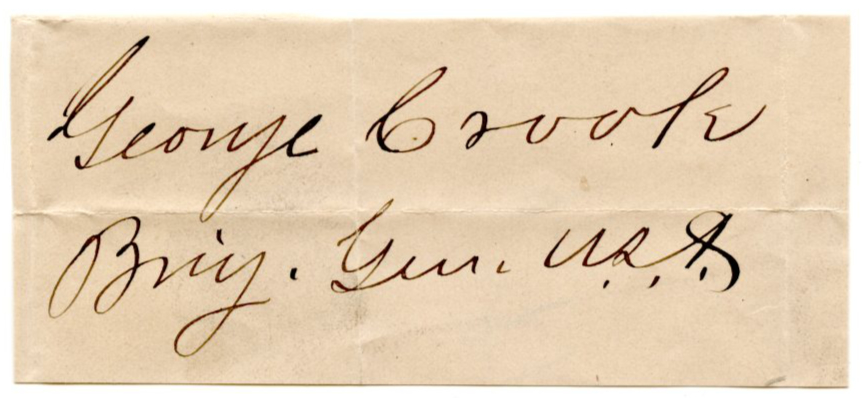 George Crook
Brig. Gen. U.S.A.